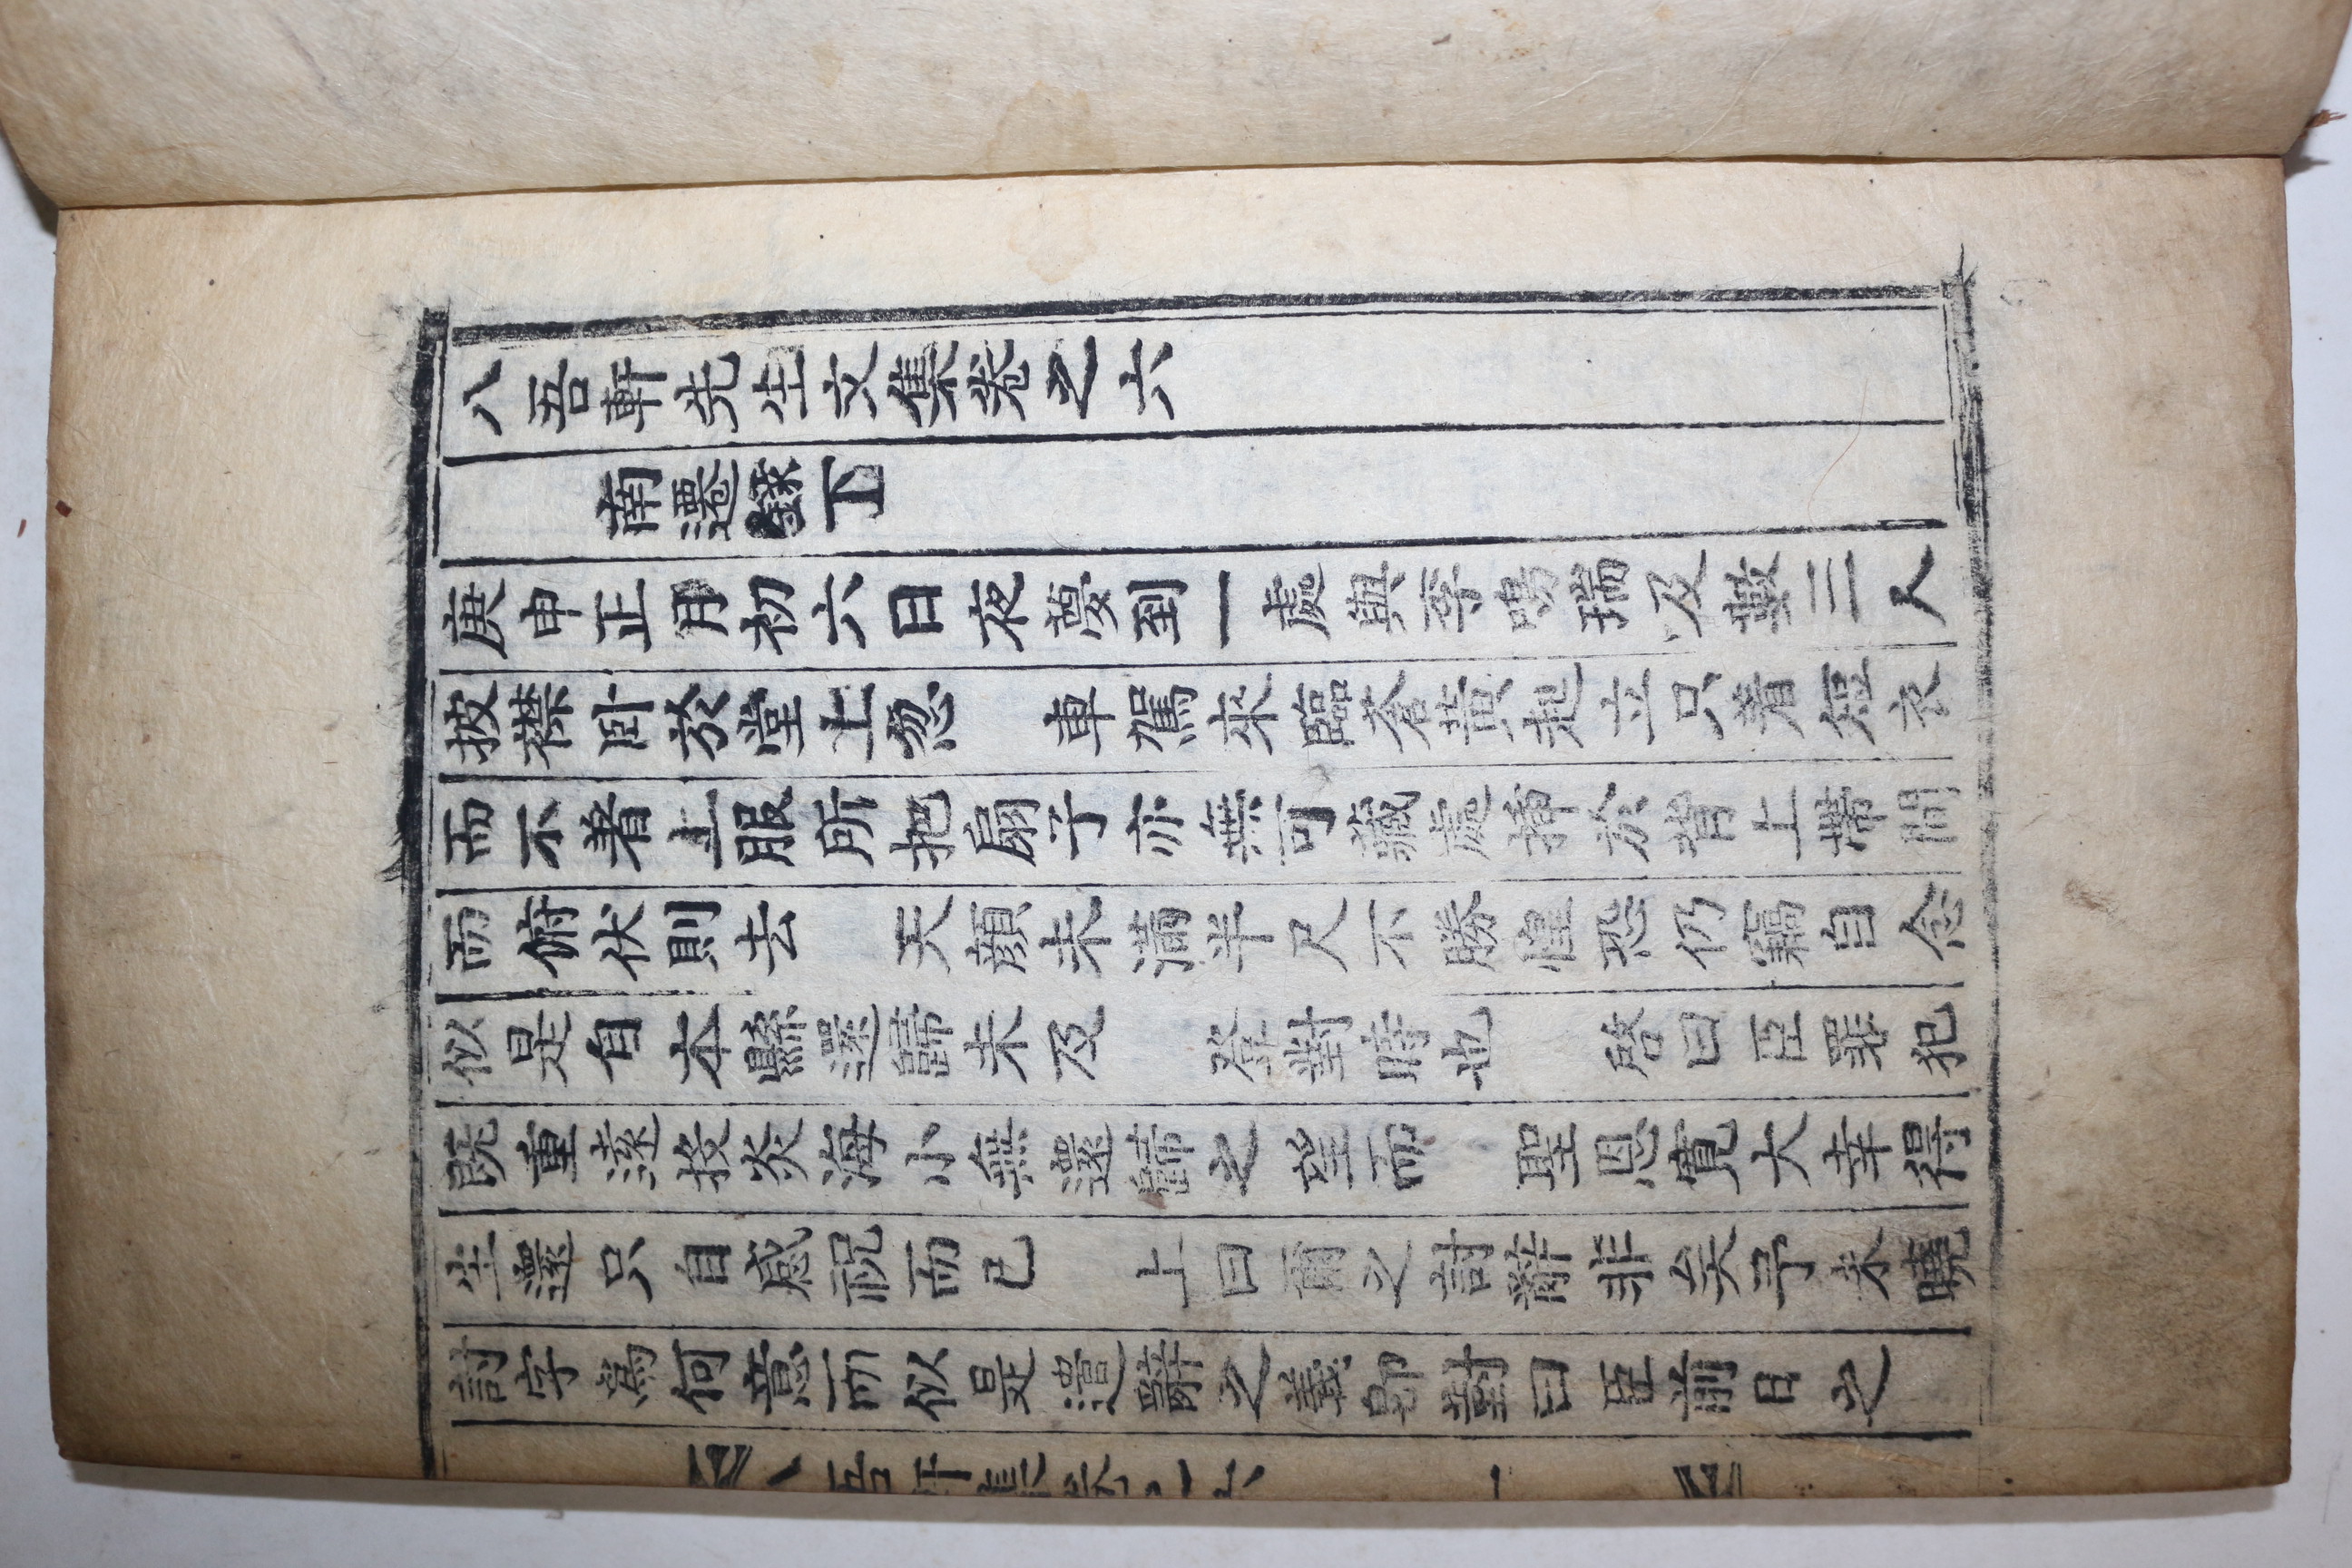 八吾軒先生文集卷之六
南遷錄下
庚申正月初六日夜夢到一處與李鳴瑞及數三人
披襟卧於堂上忽 車駕來臨蒼黃起立只着短衣
而不着上服所把扇子亦無可藏處揷於背上帶間
而俯伏則去 天顔未滿半尺不勝惶恐仍竊自念
似是自本縣還歸未及 登對時也 啓曰臣罪犯
旣重遠投炎海小無還歸之望而 聖恩寬大幸得
生還只自感祝而已 上曰爾之討辭非矣予未曉
討字爲何意而似是遣辭之義卽對曰臣前日之
八吾軒集卷之六 一